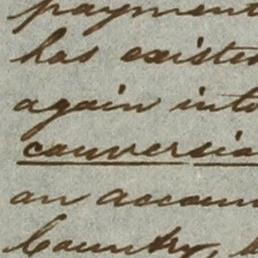 payment
has existe
again into
conversio
an accoun
Country,